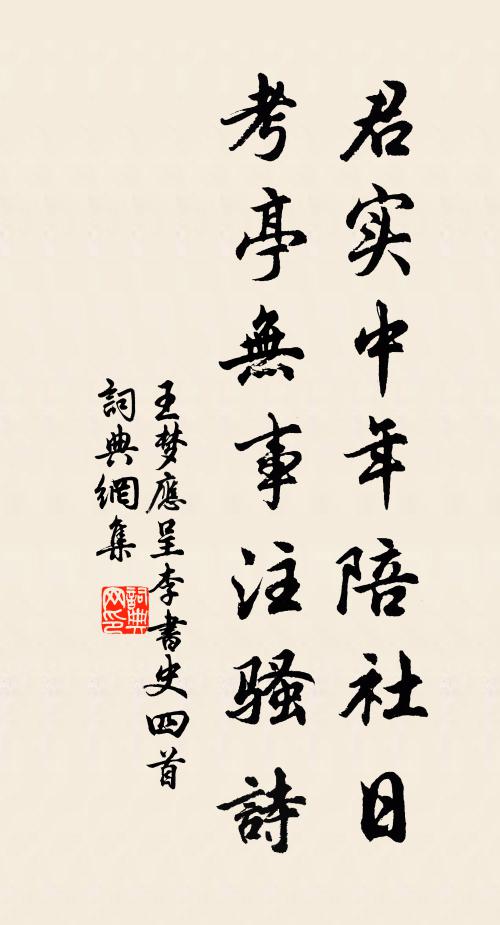 君实中年陪社日
考亭無事注騷詩
王梦應呈李書史四首
詞典網集
詞典网印